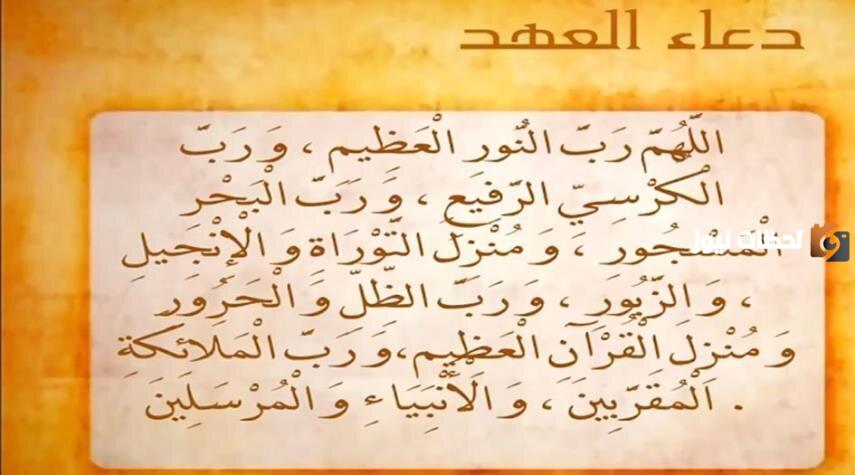 دعاء العهد
اللَّهُمَّ رَبَّ النُّورِ الْعَظِيمِ ، وَ رَبَّ
الْكُرْسِيِّ الرَّفِيعِ ، وَ رَبَّ الْبَحْرِ
الْمَسْجُورِ ، وَ مُنْزِلَ التَّوْرَاةِ وَ الْإِنْجِيلِ
لحظات نيوز
، وَ الزَّبُورِ ، وَ رَبَّ الظِّلِّ وَ الْحَرُورِ
وَ مُنْزِلَ الْقُرْآنِ الْعَظِيمِ،وَ رَبَّ الْمَلَائِكَةِ
الْمُقَرَّبِينَ ، وَ الْأَنْبِيَاءِ وَ الْمُرْسَلِينَ .